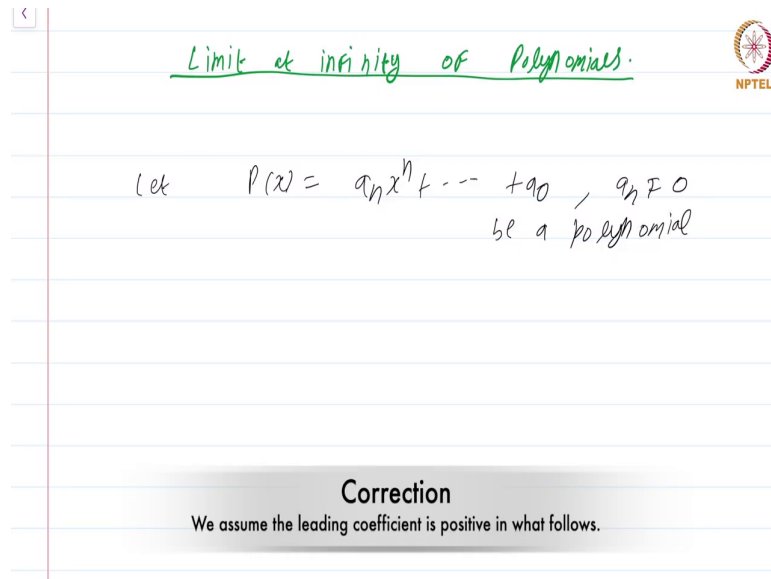 Limit at infinity of Polynomials.
NPTEL
Let P(x) = aₙxⁿ + --- + a₀ , aₙ ≠ 0
be a polynomial
Correction
We assume the leading coefficient is positive in what follows.